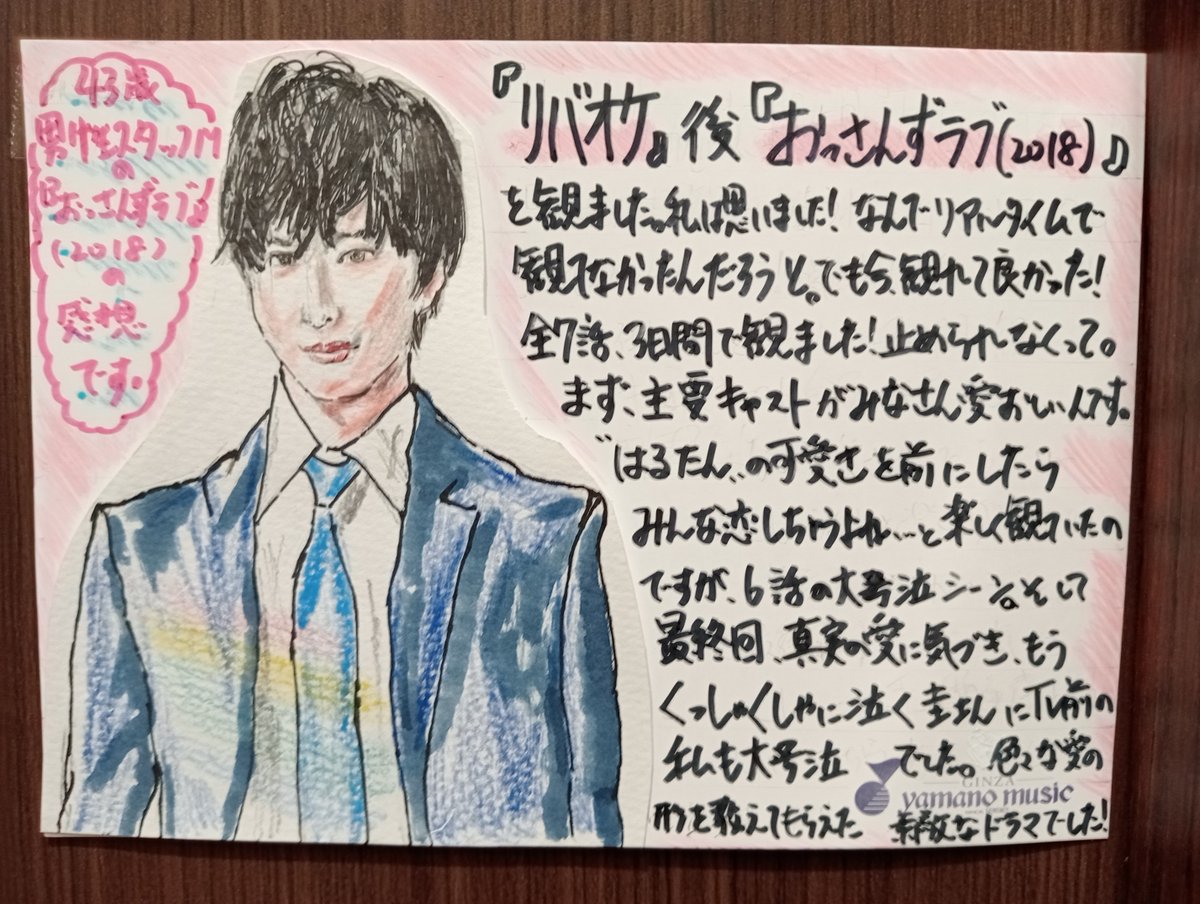 43歳
男性スタッフM
の
『おっさんずラブ』
(2018)
の
感想
です。
『リバオケ』後『おっさんずラブ(2018)』
を観ました。私は思いました!なんでリアルタイムで
観てなかったんだろうと。でも今、観れて良かった!
全7話、3日間で観ました!止められなくって。
まず、主要キャストがみなさん愛おしいんです。
"はるたん"の可愛さを前にしたら
みんな恋しちゃうよね…と楽しく観ていたの
ですが、6話の大号泣シーン。そして
最終回、真実の愛に気づき、もう
くっしゃくしゃに泣く圭さんにTV前の
私も大号泣でした。色々な愛の
形を教えてもらえた素敵なドラマでした!
GINZA
yamano music